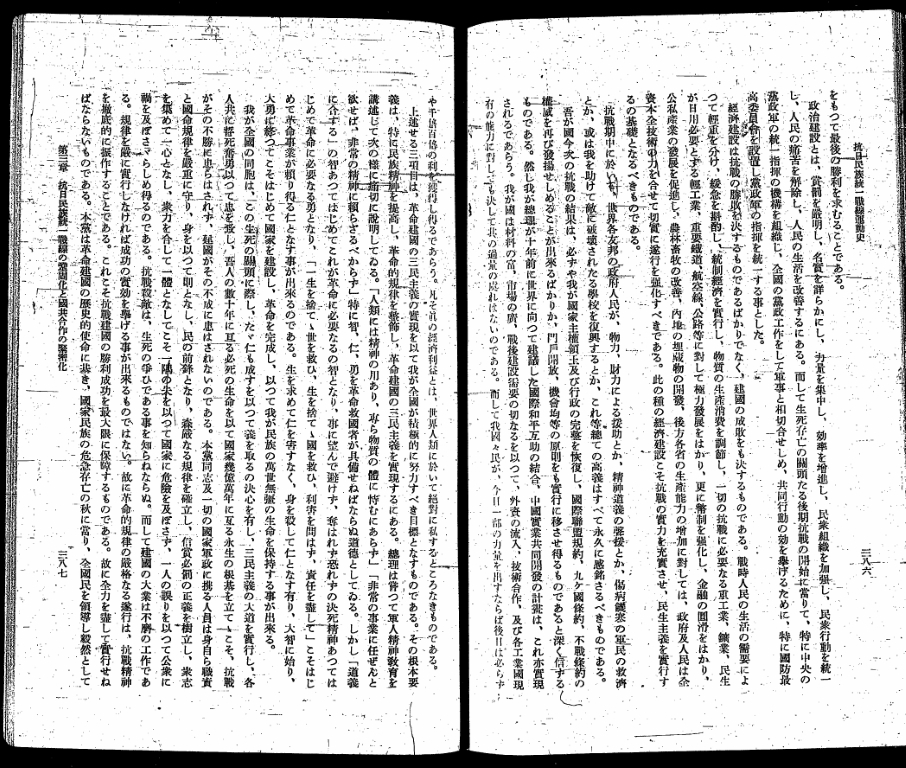 抗日民族統一戰線運動史
三八六
をもつて最後の勝利を求むることである。
政治建設とは、賞罰を嚴明し、名實を詳らかにし、力量を集中し、効率を增進し、民衆組織を加强し、民衆行動を統一
し、人民の痛苦を解除し、人民の生活を改善するにある。而して生死存亡の關頭たる後期抗戰の開始に當りて、特に中央の
黨政軍の統一指揮の機構を組織し、全國の黨政工作をして軍事と相切合せしめ、共同行動の効を擧げるために、特に國防最
高委員會を設置し黨政軍の指揮を統一する事とした。
經濟建設は抗戰の勝敗を決するものであるばかりでなく、建國の成敗をも決するものである。戰時人民の生活の需要によ
つて輕重を分け、緩急を斟酌し、統制經濟を實行し、物質の生產消費を調節し、一切の抗戰に必要なる重工業、鑛業、民生
が日用必要とする輕工業、重要鐵道、航空線、公路等に對して極力發展をはかり、更に幣制を强化し、金融の圓滑をはかり、
公私產業の發展を促進し、農林畜牧の改善、內地の埋藏物の開發、後方各省の生產能力の增加に對しては、政府及人民は全
資本全技術の力を合せて切實に遂行を强化すべきである。此の種の經濟建設こそ抗戰の實力を充實させ、民生主義を實行す
るの基礎となるべきものである。
抗戰期中に於いて、世界各友邦の政府人民が、物力、財力による援助とか、精神道義の聲援とか、傷病護寒の軍民の救濟
とか、或は我を助けて敵に破壞されたる學校を復興するとか、これ等總ての高義はすべて永久に感銘さるべきものである。
吾が國今次の抗戰の結果は、必ずや我が國家主權領土及び行政の完整を恢復し、國際聯盟規約、九ヶ國條約、不戰條約の
權威を再び發揚せしめることが出來るばかりか、門戶開放、機會均等の原則をも實行に移させ得るものであると深く信ずる
ものである。然し我が總理が十年前に世界に向つて建議した國際和平互助の結合、中國實業共同開發の計畫は、これ亦實現
されるであらう。我が國は材料の富、市場の廣、戰後建設需要の切なるを以つて、外資の流入、技術合作、及び各工業國現
有の能力に對しても決して其の過量の虞れはないのである。而して我國々民が、今日一部の力量を出すならば後日は必らず
や千倍百倍の利を獲得し得るであらう。凡そ眞の經濟利益とは、世界人類に於いて絕對に私するところなきものである。
上述せる三項目は、革命建國の三民主義の實現を以て我が全國が積極的に努力すべき目標となすものである。その根本要
義は、特に民族精神を提高し、革命的規律を整飾し、革命建國の三民主義を實現するにある。總理は曾つて軍人精神敎育を
講述して次の樣に痛切に說明してゐる。「人類には精神の用あり、專ら物質の體に恃むにあらず」「非常の事業に任ぜんと
欲せば、非常の精神に賴らざるべからず」特に智、仁、勇を革命救國者が具備せねばならぬ道德としてゐる。しかし「道義
に合する」の智あつてはじめてこれが革命に必要なるの智となり、事に望んで避けず、奪はれず恐れずの決死精神あつては
じめて革命に必要なる勇となり、「一生を捨てゝ世を救ひ、生を捨てゝ國を救ひ、利害を問はず、責任を盡して」こそはじ
めて革命事業が賴り得る仁となす事が出來るのである。生を求めて仁を害すなく、身を殺して仁となす有り、大智に始り、
大勇に終つてこそはじめて國家を建設し、革命を完成し、以つて我が民族の萬世無彊の生命を保持する事が出來る。
我が全國の同胞は、この生死の關頭に際し、たゞ仁も成すを以つて義を取るの決心を有し、三民主義の大道を實行し、各
人共に黽死奮勇以つて忠を致し、吾人の數十年に亙る必死の生命を以て國家幾億萬年に亙る永生の根基を立てゝこそ、抗戰
がその不勝に患らはされず、建國がその不成に患はされないのである。本黨同志及一切の國家軍政に携る人員は身自ら職責
と國命規律を嚴重に守り、身を以つて則となし、民の前鋒となり、森嚴なる規律を確立し、信賞必罰の正義を樹立し、衆志
を集めて一心となし、衆力を合して一體となしてこそ一隅の失を以つて國家に危險を及ぼさず、一人の誤りを以つて公衆に
禍を及ぼさゞらしめ得るのである。抗戰殺敵は、生死の爭ひである事を知らねばならぬ。而して建國の大業は不磨の工作であ
る。規律を嚴に實行しなければ成功の實効を擧げる事が出來るものではない。故に革命的規律の嚴格なる遂行は、抗戰精神
を徹底的に振作することである。これこそ抗戰建國の勝利成功を最大限に保障するものである。故に全力を盡して實行せね
ばならないものである。本黨は革命建國の歷史的使命に基き、國家民族の危急存亡の秋に當り、全國民を領導し毅然として
第三章 抗日民族統一戰線の鞏固化と國共合作の緊密化
三八七